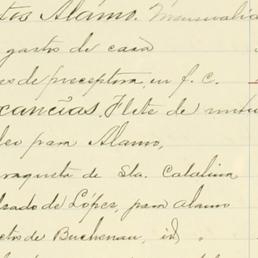 tos Alamo. Mensualida
gastos de casa
es de preceptora, en f. C.
cancías. Flete de
leo para Alamo,
raqueta de Sta. Catalina
lzado de López, para Alamo
cto de Buchenau, id,